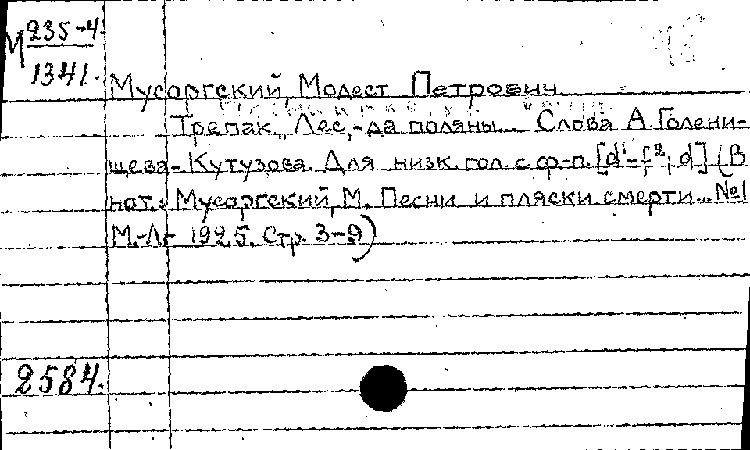 М 235-4
1341.
Мусоргский, Модест Петрович
Трепак. „Лес, да поляны... Слова А Голени-
щева-Кутузова. Для низк. гол. с ф-п. [d¹-f²; d] (В
нот.: Мусоргский, М. Песни и пляски смерти... №1
М.-Л. 1925. Стр. 3-9)
2584.